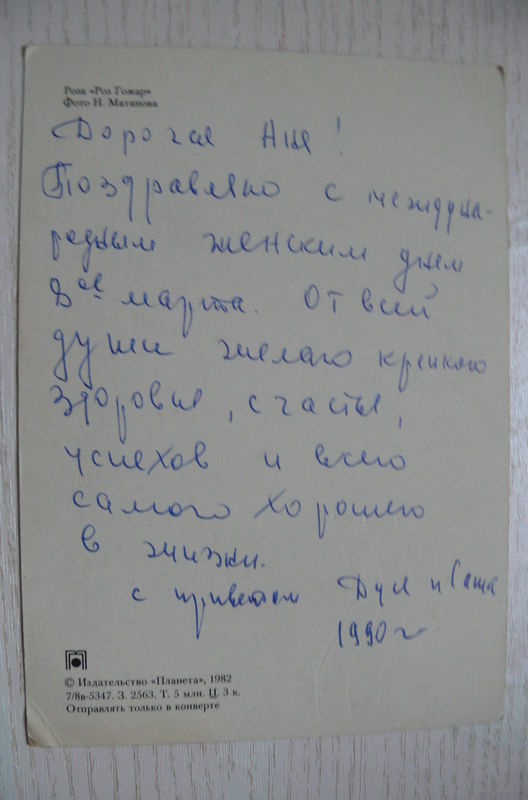 Роза «Роз Гожар»
Фото Н. Матанова
Дорогая Аня!
Поздравляю с междуна-
родным женским днем
8ое марта. От всей
души желаю крепкого
здоровья, счастья,
успехов и всего
самого хорошего
в жизни.
с приветом Дуся и Саша
1990 г
© Издательство «Планета», 1982
7/8в-5347. З. 2563. Т. 5 млн. Ц. 3 к.
Отправлять только в конверте